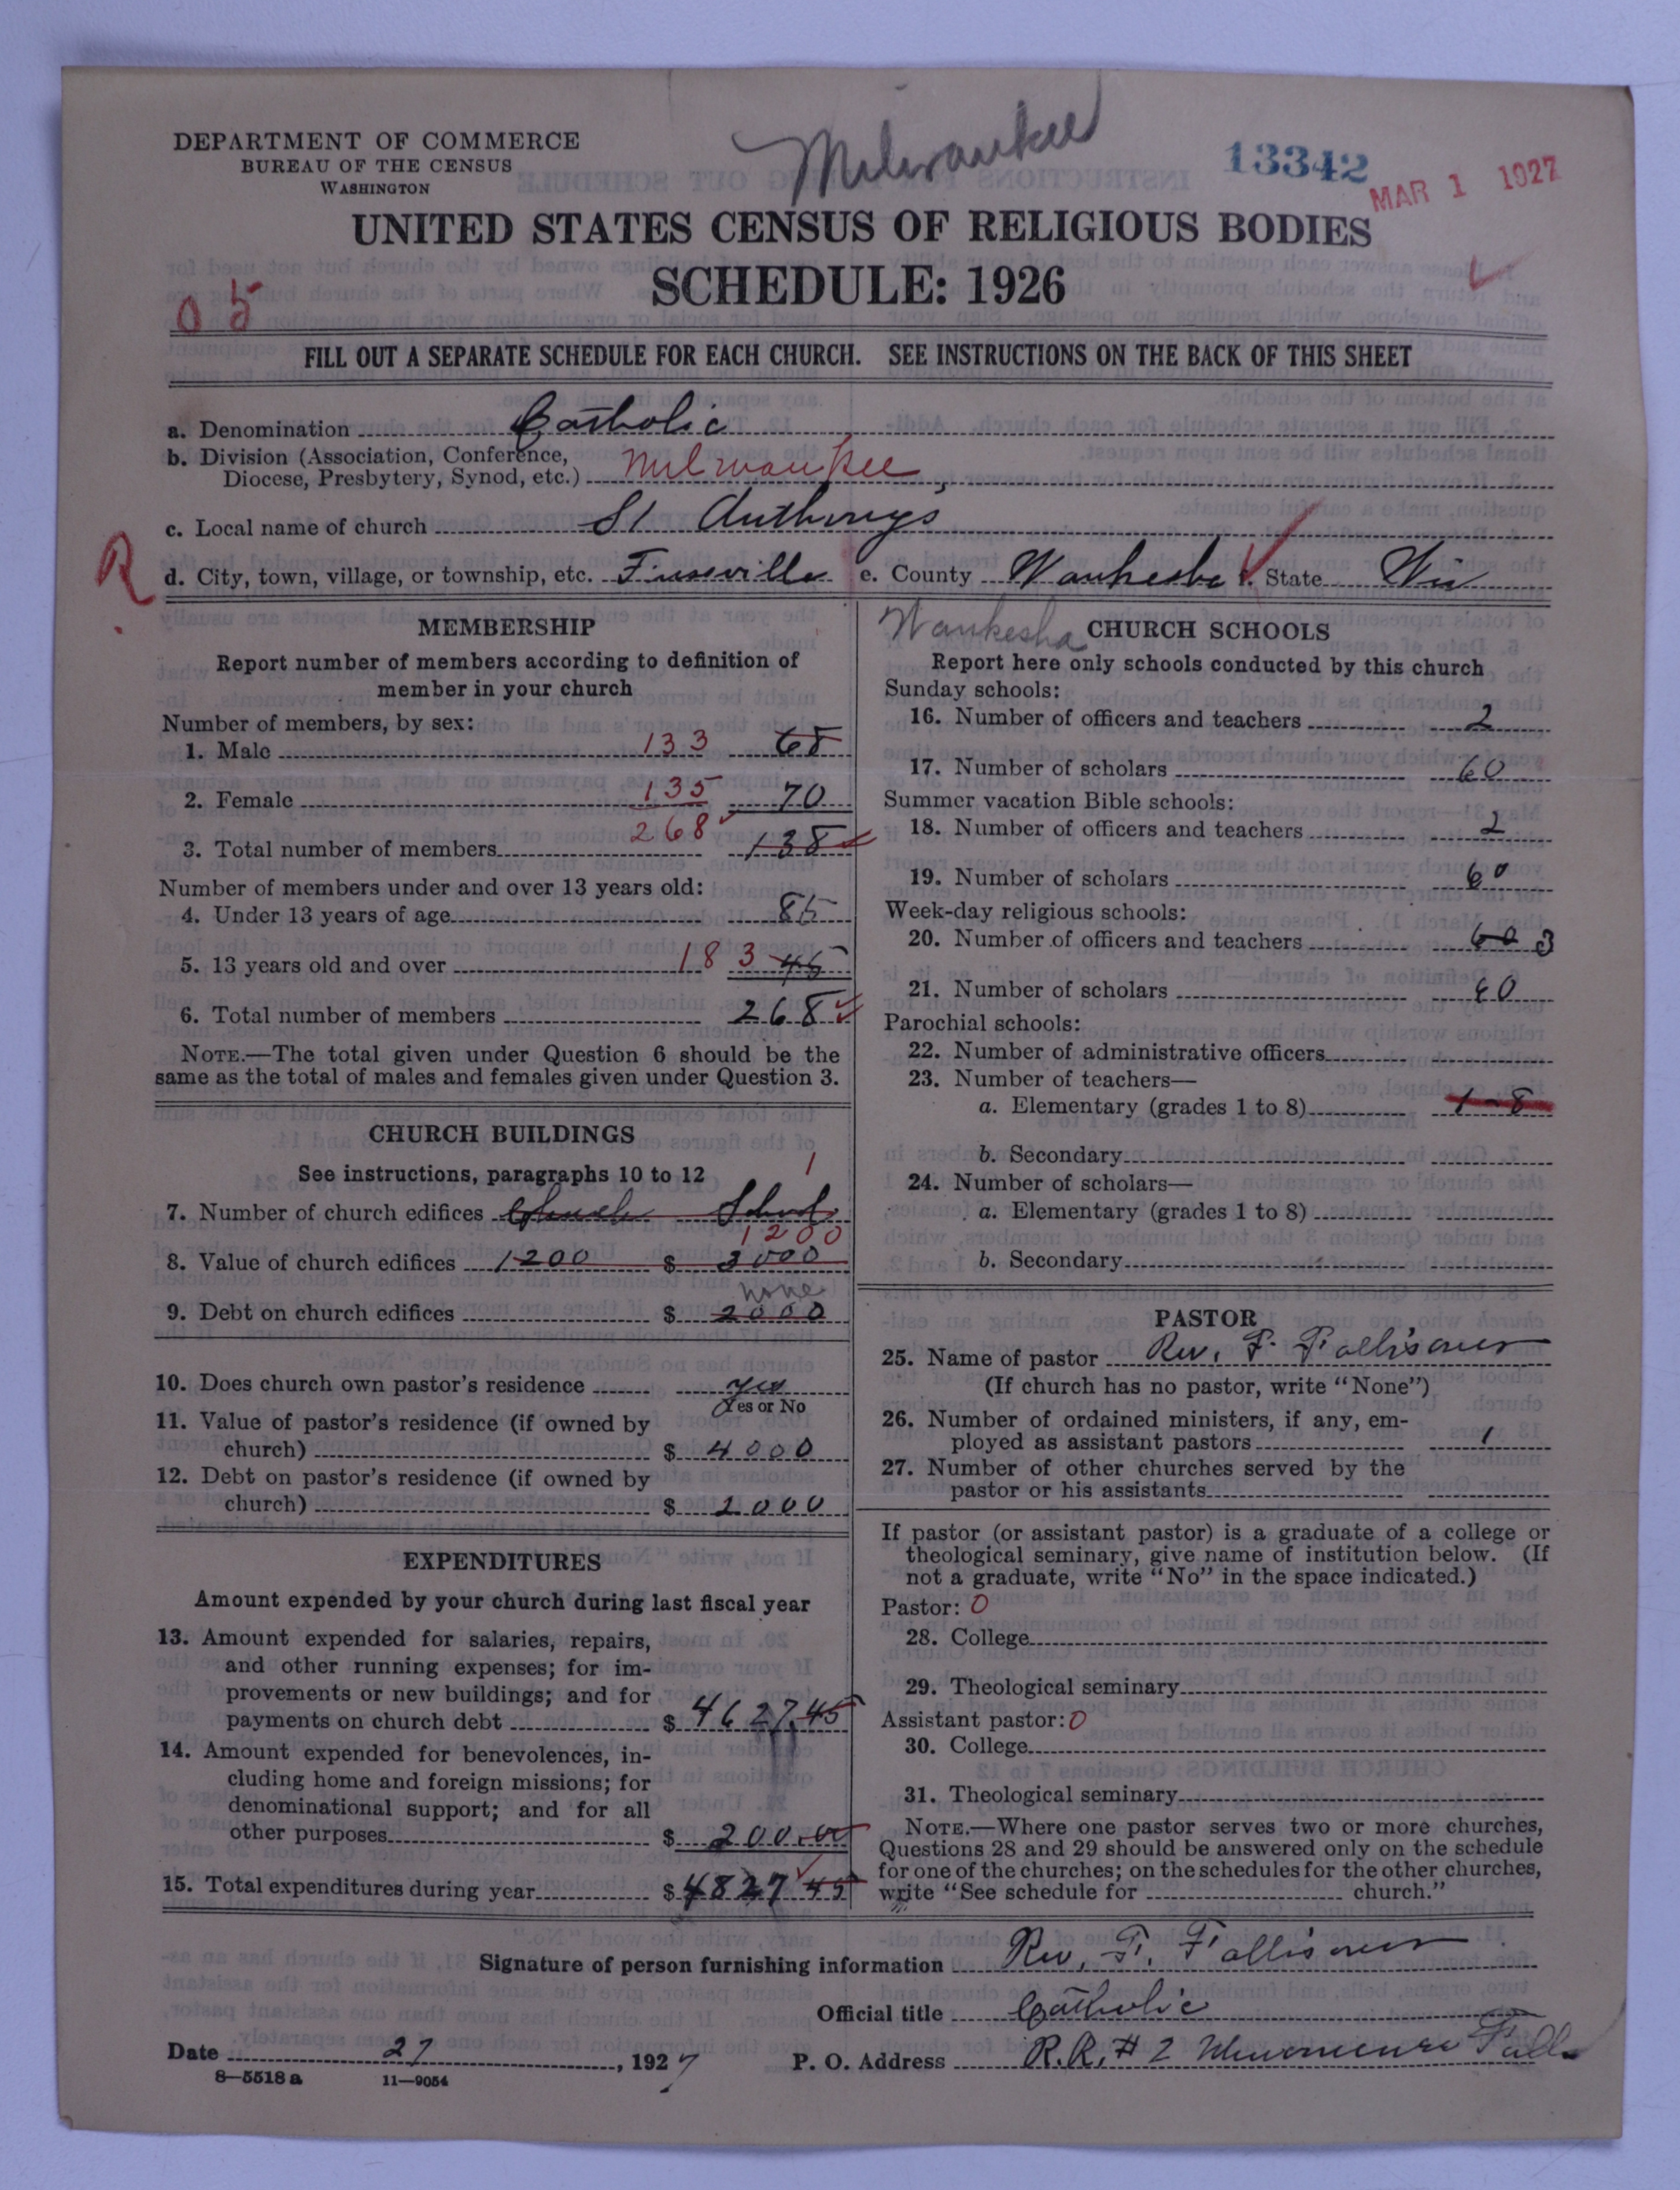 Milwaukee
13342
MAR 1 1927
DEPARTMENT OF COMMERCE
BUREAU OF THE CENSUS
WASHINGTON
UNITED STATES CENSUS OF RELIGIOUS BODIES
SCHEDULE: 1926
05
FILL OUT A SEPARATE SCHEDULE FOR EACH CHURCH. SEE INSTRUCTIONS ON THE BACK OF THIS SHEET
a. Denomination Catholic
b. Division (Association, Conference,
Diocese, Presbytery, Synod, etc.) Milwaukee
c. Local name of church St Anthonys
R
d. City, town, village, or township, etc. Fussville e. County Waukesha f. State Wis
MEMBERSHIP
Report number of members according to definition of
member in your church
Number of members, by sex:
1. Male 133 68
2. Female 135 70
3. Total number of members 268 138
Number of members under and over 13 years old:
4. Under 13 years of age 85
5. 13 years old and over 183 45
6. Total number of members 268
NOTE.—The total given under Question 6 should be the
same as the total of males and females given under Question 3.
CHURCH BUILDINGS
See instructions, paragraphs 10 to 12 1
7. Number of church edifices Church School
1200
8. Value of church edifices 1200 $ 3000
none
9. Debt on church edifices $ 2000
10. Does church own pastor's residence yes
Yes or No
11. Value of pastor's residence (if owned by
church) $ 4000
12. Debt on pastor's residence (if owned by
church) $ 2000
EXPENDITURES
Amount expended by your church during last fiscal year
13. Amount expended for salaries, repairs,
and other running expenses; for im-
provements or new buildings; and for
payments on church debt $ 4627.45
14. Amount expended for benevolences, in-
cluding home and foreign missions; for
denominational support; and for all
other purposes $ 200.00
15. Total expenditures during year $ 4827 45
Waukesha
CHURCH SCHOOLS
Report here only schools conducted by this church
Sunday schools:
16. Number of officers and teachers 2
17. Number of scholars 60
Summer vacation Bible schools:
18. Number of officers and teachers 2
19. Number of scholars 60
Week-day religious schools:
20. Number of officers and teachers 60 3
21. Number of scholars 60
Parochial schools:
22. Number of administrative officers
23. Number of teachers—
a. Elementary (grades 1 to 8) 1-8
b. Secondary
24. Number of scholars—
a. Elementary (grades 1 to 8)
b. Secondary
PASTOR
25. Name of pastor Rev. F.
(If church has no pastor, write "None")
26. Number of ordained ministers, if any, em-
ployed as assistant pastors 1
27. Number of other churches served by the
pastor or his assistants
If pastor (or assistant pastor) is a graduate of a college or
theological seminary, give name of institution below. (If
not a graduate, write "No" in the space indicated.)
Pastor: 0
28. College
29. Theological seminary
Assistant pastor: 0
30. College
31. Theological seminary
NOTE.—Where one pastor serves two or more churches,
Questions 28 and 29 should be answered only on the schedule
for one of the churches; on the schedules for the other churches,
write "See schedule for church."
Signature of person furnishing information Rev. F.
Official title Catholic
Date 27, 1927 P. O. Address R.R. # 2 Menomenee Falls
8—5518a 11—9054